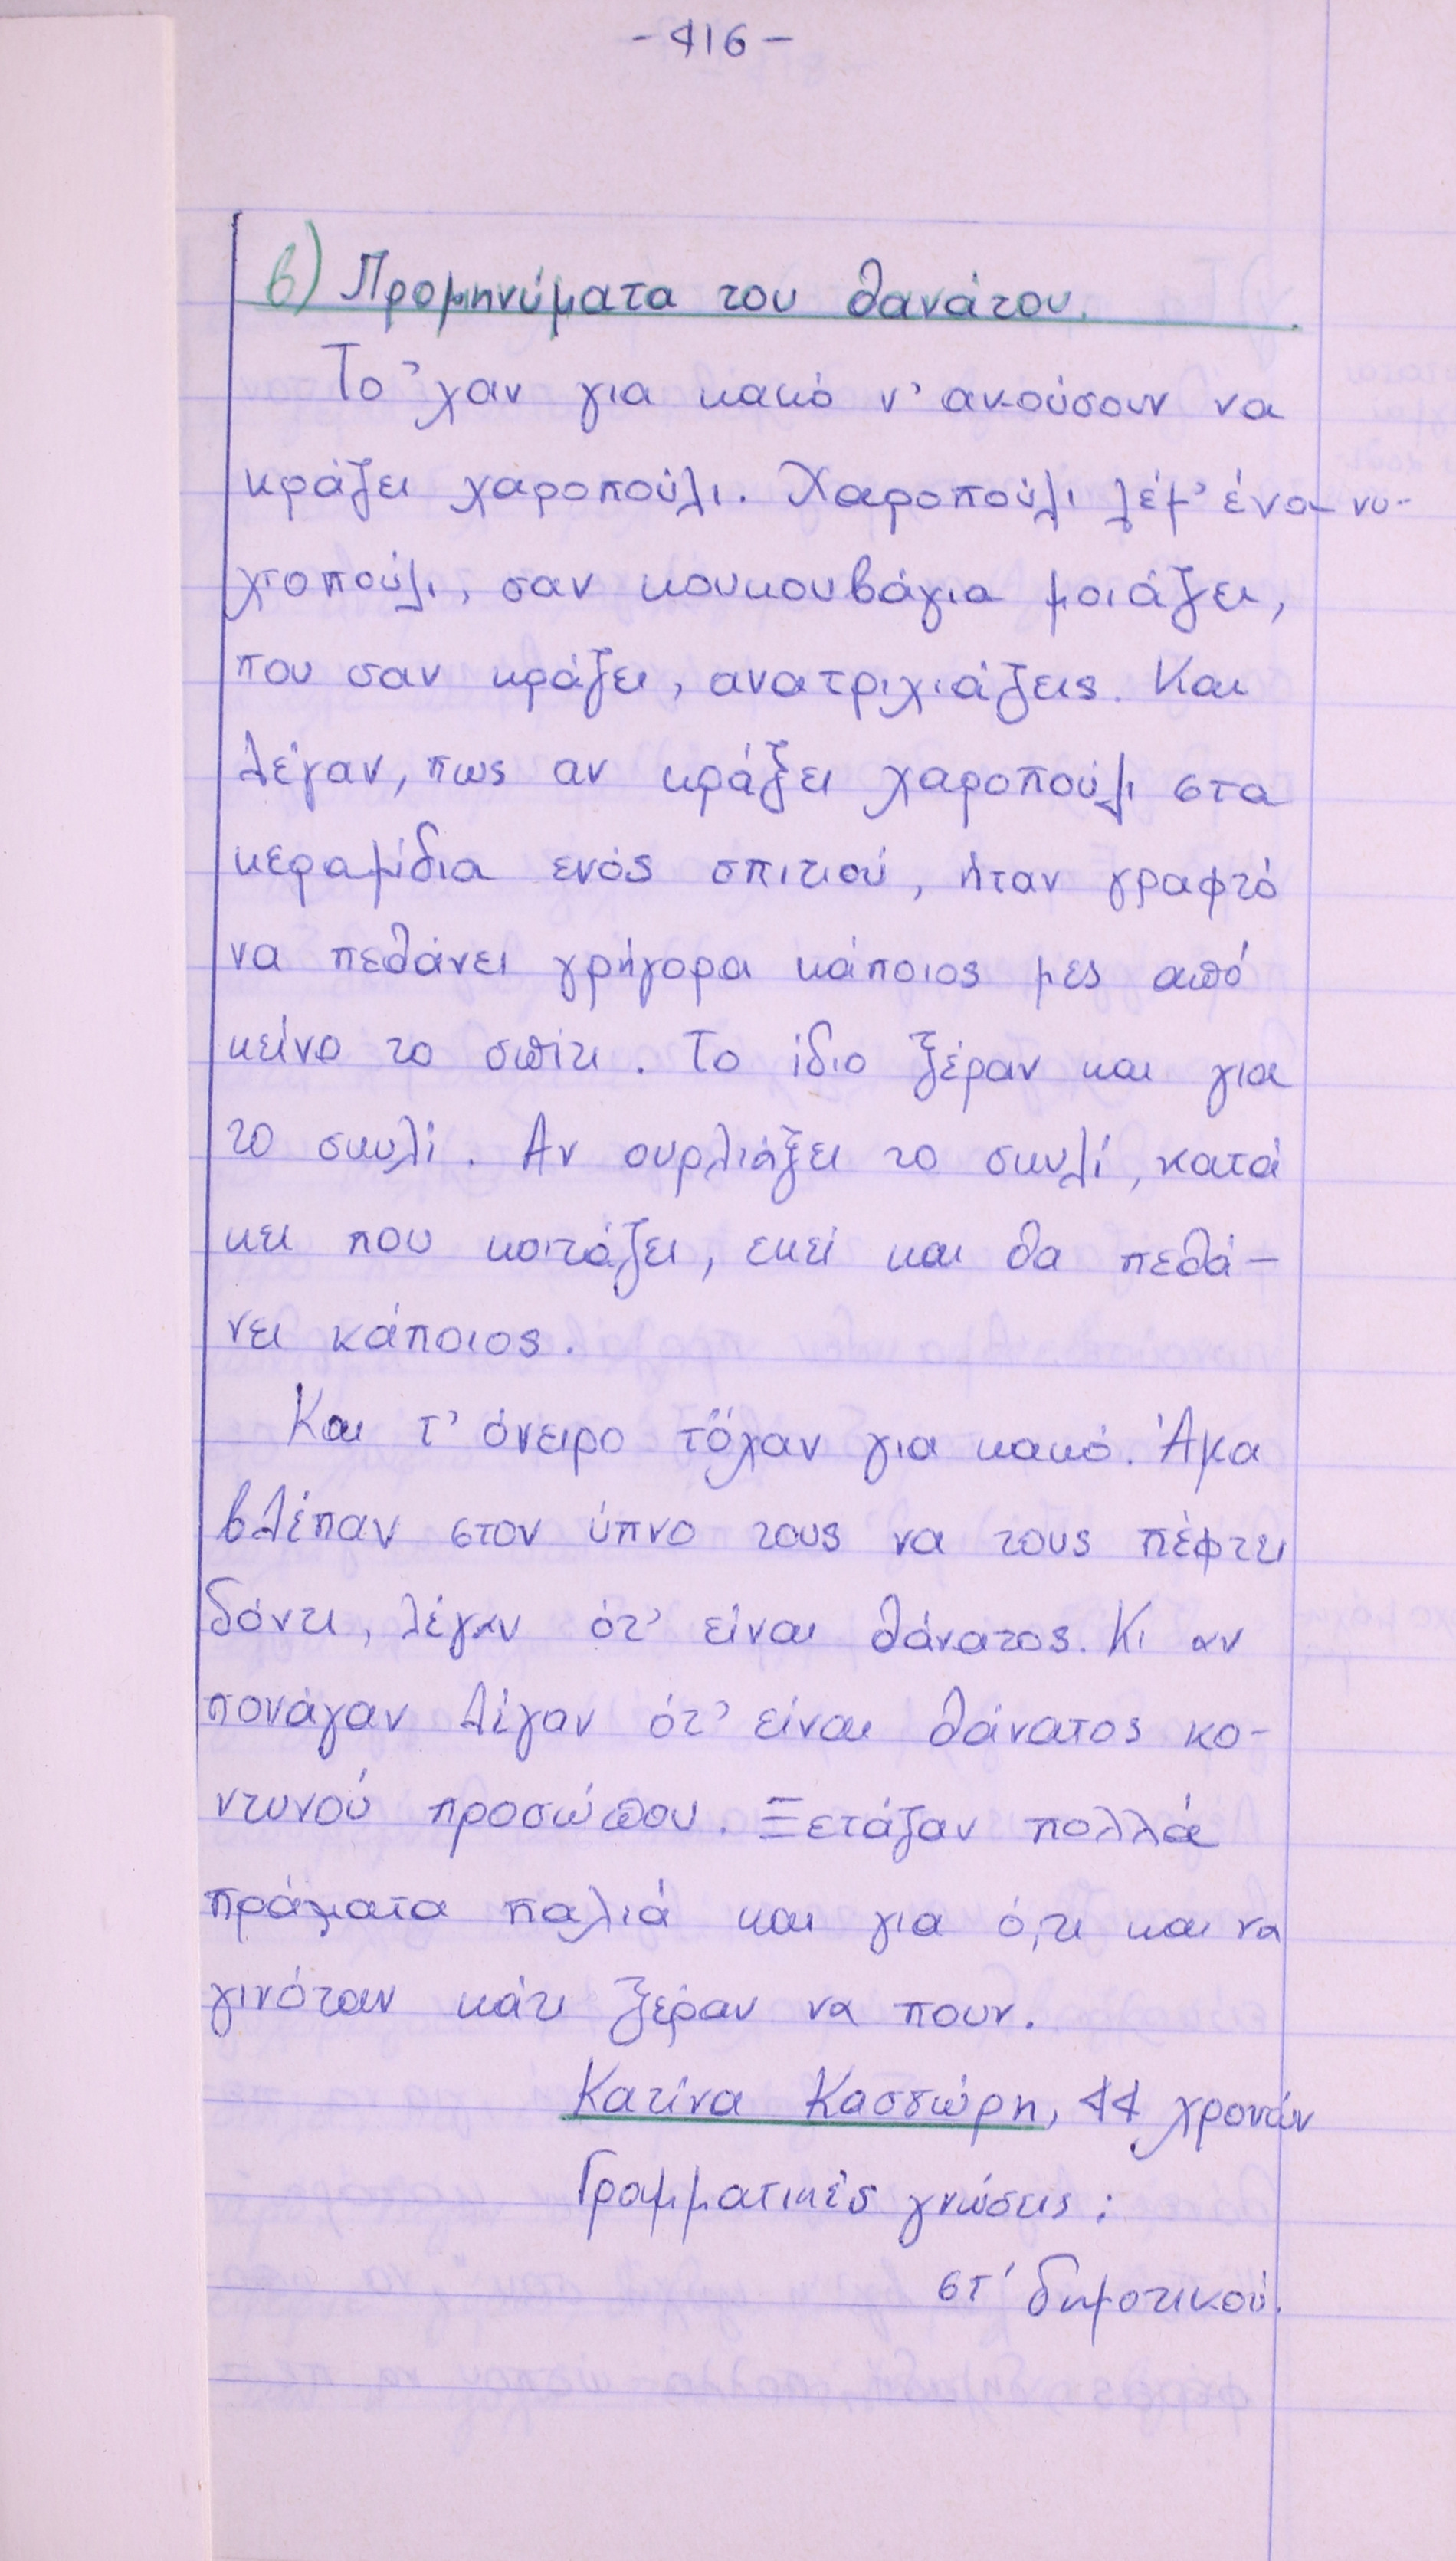 - 416 -
β) Προμηνύματα του θανάτου.
Το 'χαν για κακό ν' ακούσουν να
κράζει χαροπούλι. Χαροπούλι λέμ' ένα νυ-
χτοπούλι, σαν κουκουβάγια μοιάζει,
που σαν κράζει, ανατριχιάζεις. Και
λέγαν, πως αν κράξει χαροπούλι στα
κεραμίδια ενός σπιτιού, ήταν γραφτό
να πεθάνει γρήγορα κάποιος μες από
κείνο το σπίτι. Το ίδιο ξέραν και για
το σκυλί. Αν ουρλιάξει το σκυλί, κατά
κει που κοιτάζει, εκεί και θα πεθά-
νει κάποιος.
Και τ' όνειρο τὄχαν για κακό. Άμα
βλέπαν στον ύπνο τους να τους πέφτει
δόντι, λέγαν ότ' είναι θάνατος. Κι αν
πονάγαν λέγαν ότ' είναι θάνατος κο-
ντινού προσώπου. Ξετάζαν πολλά
πράματα παλιά και για ό,τι και να
γινόταν κάτι ξέραν να πουν.
Κατίνα Κασσώρη, 44 χρονών
Γραμματικές γνώσεις:
στ' δημοτικού.